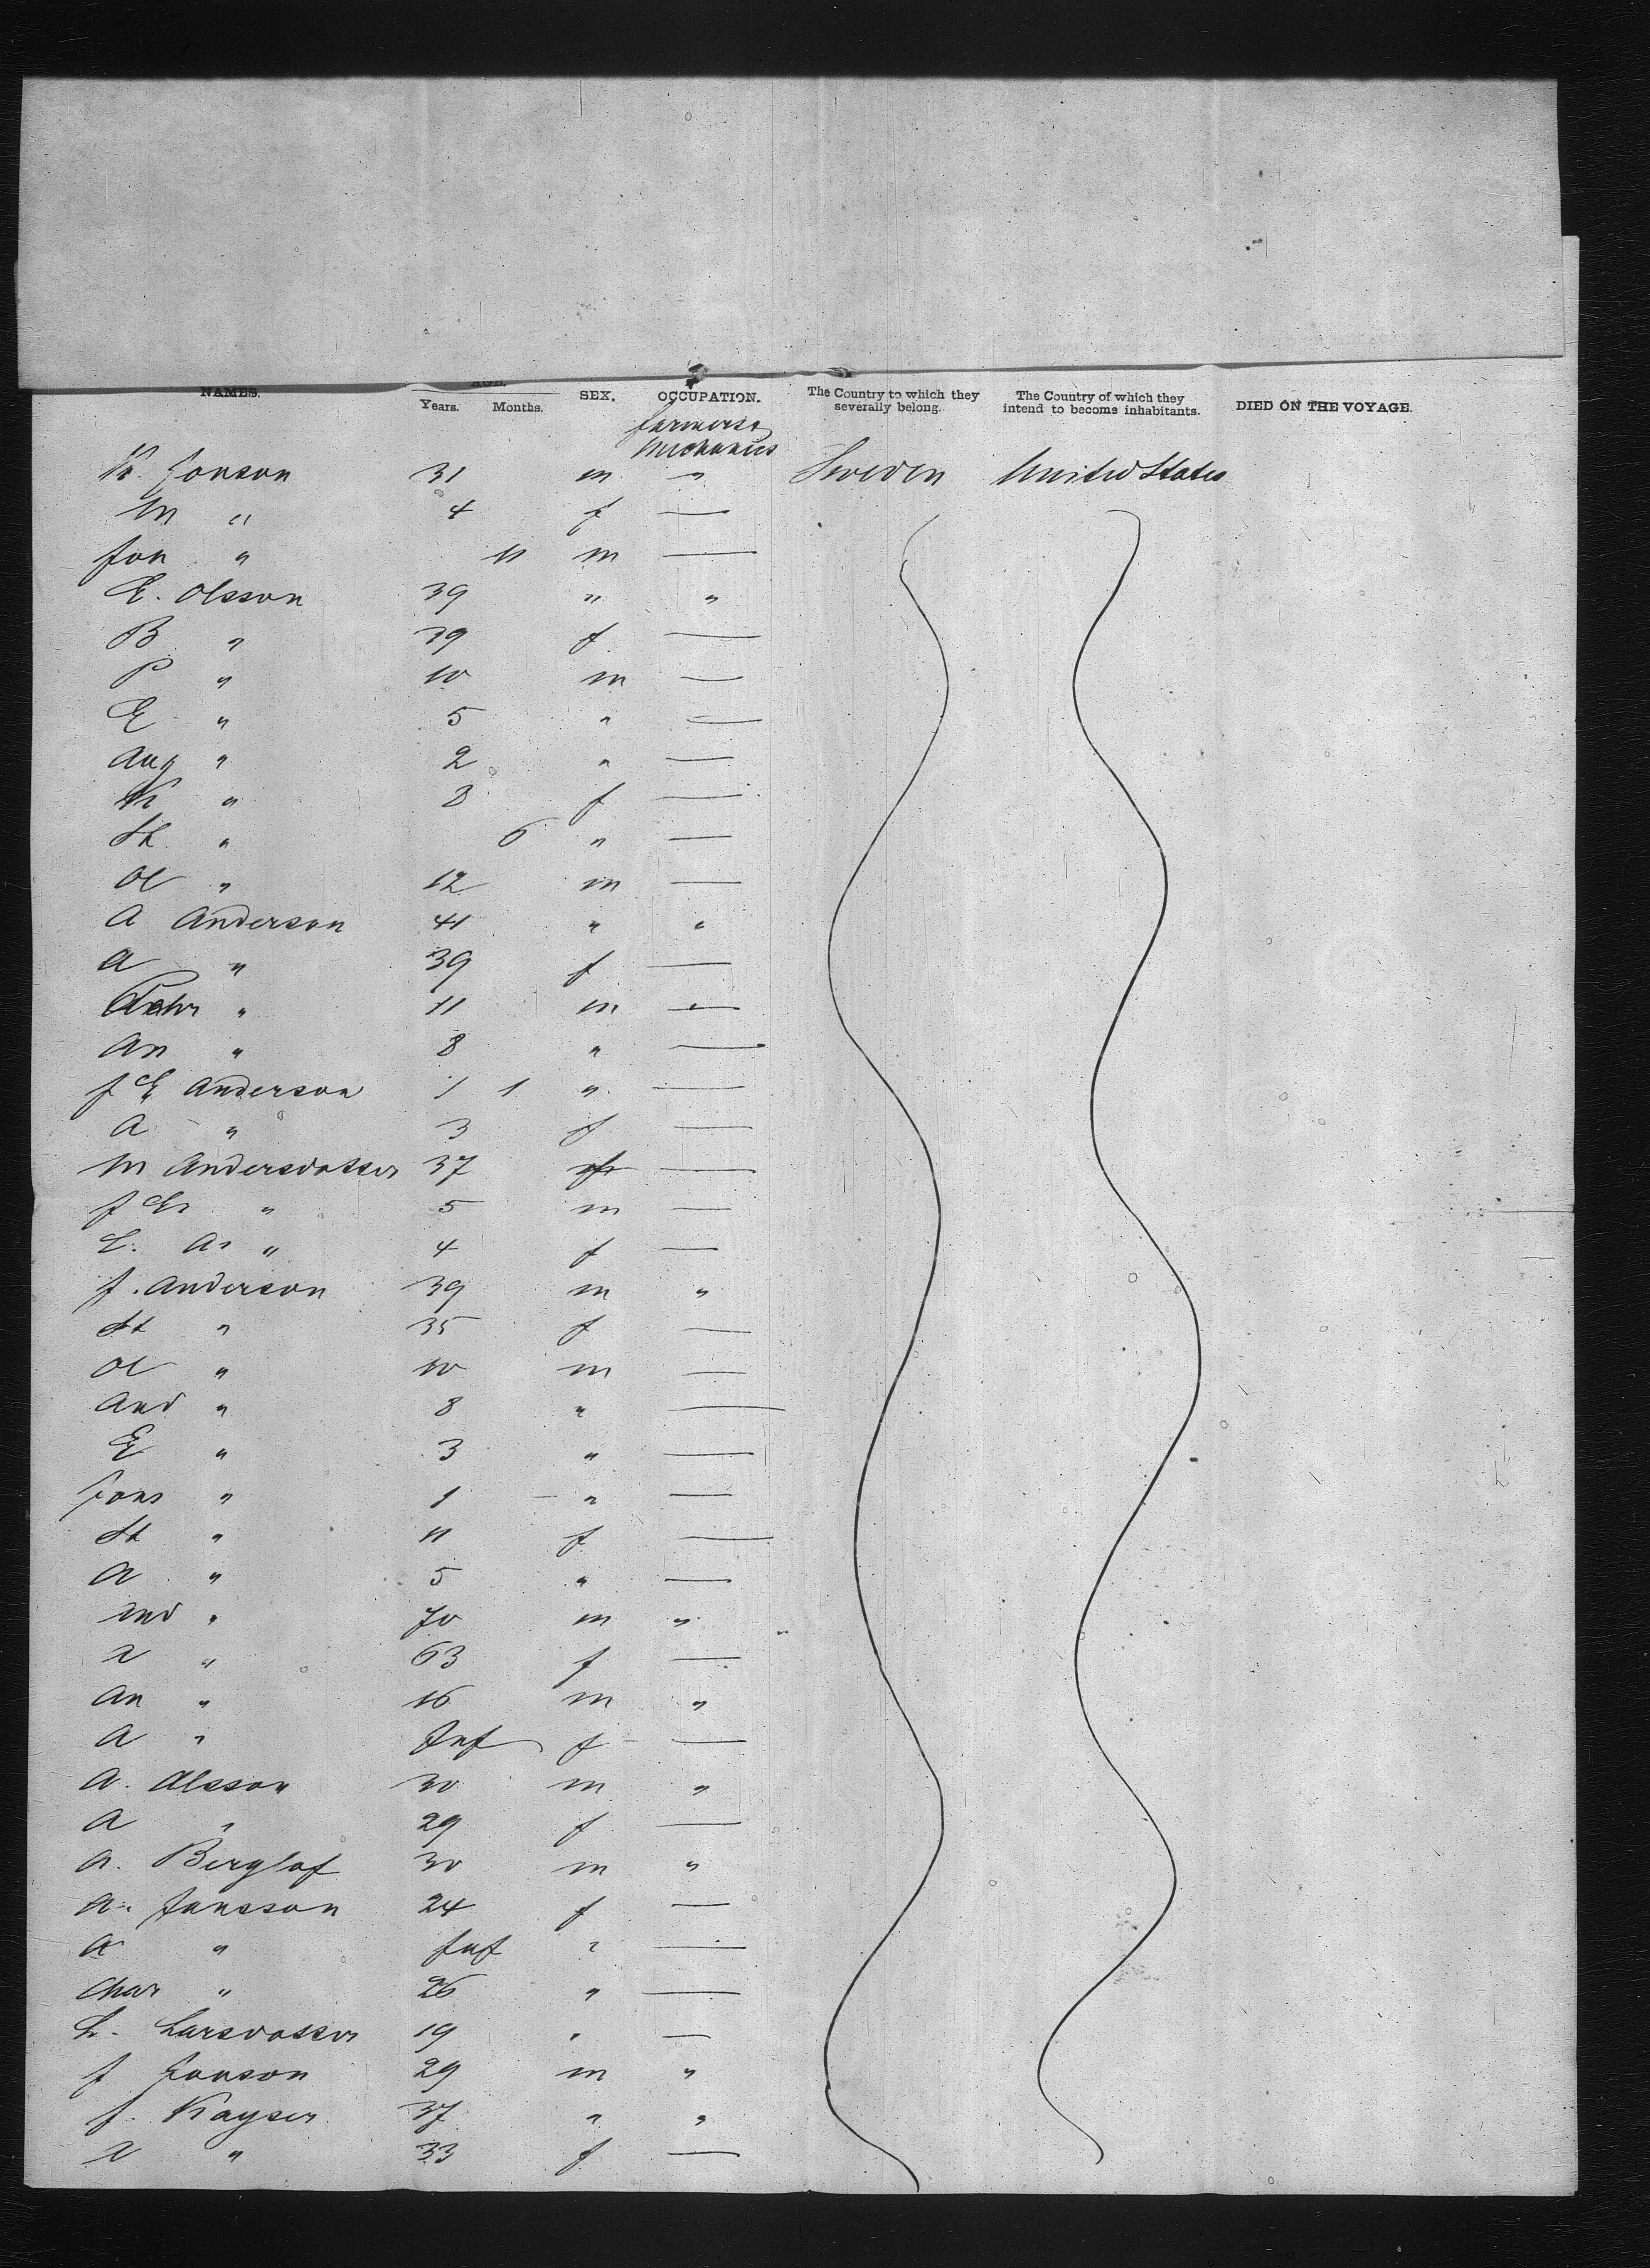 NAMES. AGE. SEX. OCCUPATION. The Country to which they severally belong. The Country of which they intend to become inhabitants. DIED ON THE VOYAGE.
Years. Months.
Farmers &
Mechanics
Jonson 31 m " Sweden United States
M " 4 f —
Jon " 11 m —
E. Olsson 39 " "
B " 39 f —
P " 10 m —
E " 5 " —
Aug " 2 " —
K " 8 f —
St " 6 " —
Ol " 12 m —
A Anderson 41 " "
A " 39 f —
Pehr " 11 m —
An " 8 " —
J E Anderson 1 1 " —
A " 3 f —
M Andersdotter 37 f —
J " 5 m —
E. A " 4 f —
J. Anderson 39 m "
St " 35 f —
Ol " 10 m —
And " 8 " —
E " 3 " —
Jons " 1 " —
St " 11 f —
A " 5 " —
And " 70 m "
" 63 f —
An " 16 m "
A " Inf f —
A. Olsson 30 m "
A " 29 f —
A. Berglof 30 m "
A. Jansson 24 f —
A " Inf " —
Char " 26 " —
L. Larsdotter 19 " —
J Jonson 29 m "
J. Kayser 37 " "
" 33 f —